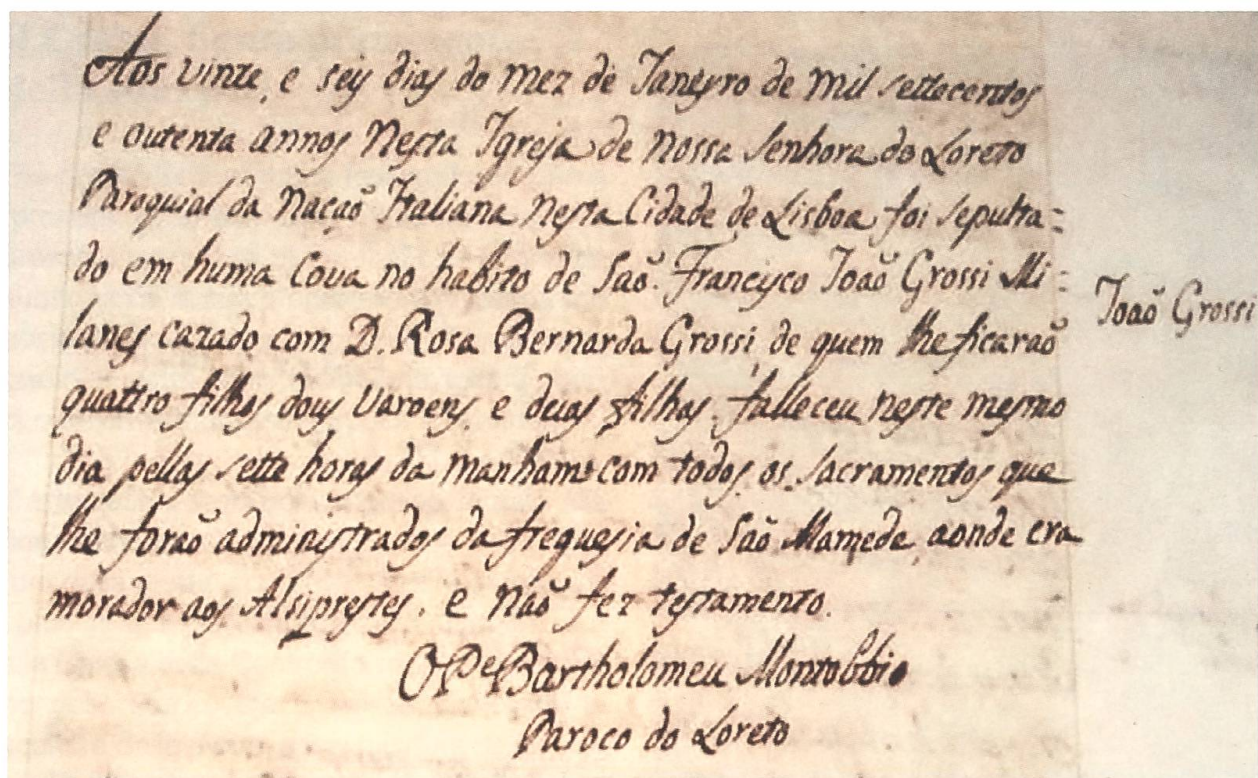 Aos vinte, e seis dias do mez de Janeyro de mil settecentos
e outenta annos nesta Igreja de Nossa Senhora do Loreto
Paroquial da Nação Italiana nesta Cidade de Lisboa foi sepulta=
do em huma Cova no habito de São Francisco João Grossi Mi=
lanes cazado com D. Rosa Bernarda Grossi, de quem lhe ficarão
quattro filhos dous varoens, e duas filhas. falleceu neste mesmo
dia pellas sette horas da manham com todos os sacramentos que
lhe forão administrados da freguesia de São Mamede, aonde era
morador aos Alsiprestes. e não fez testamento.
O Pe Bartholomeu Montobbio
Paroco do Loreto
João Grossi